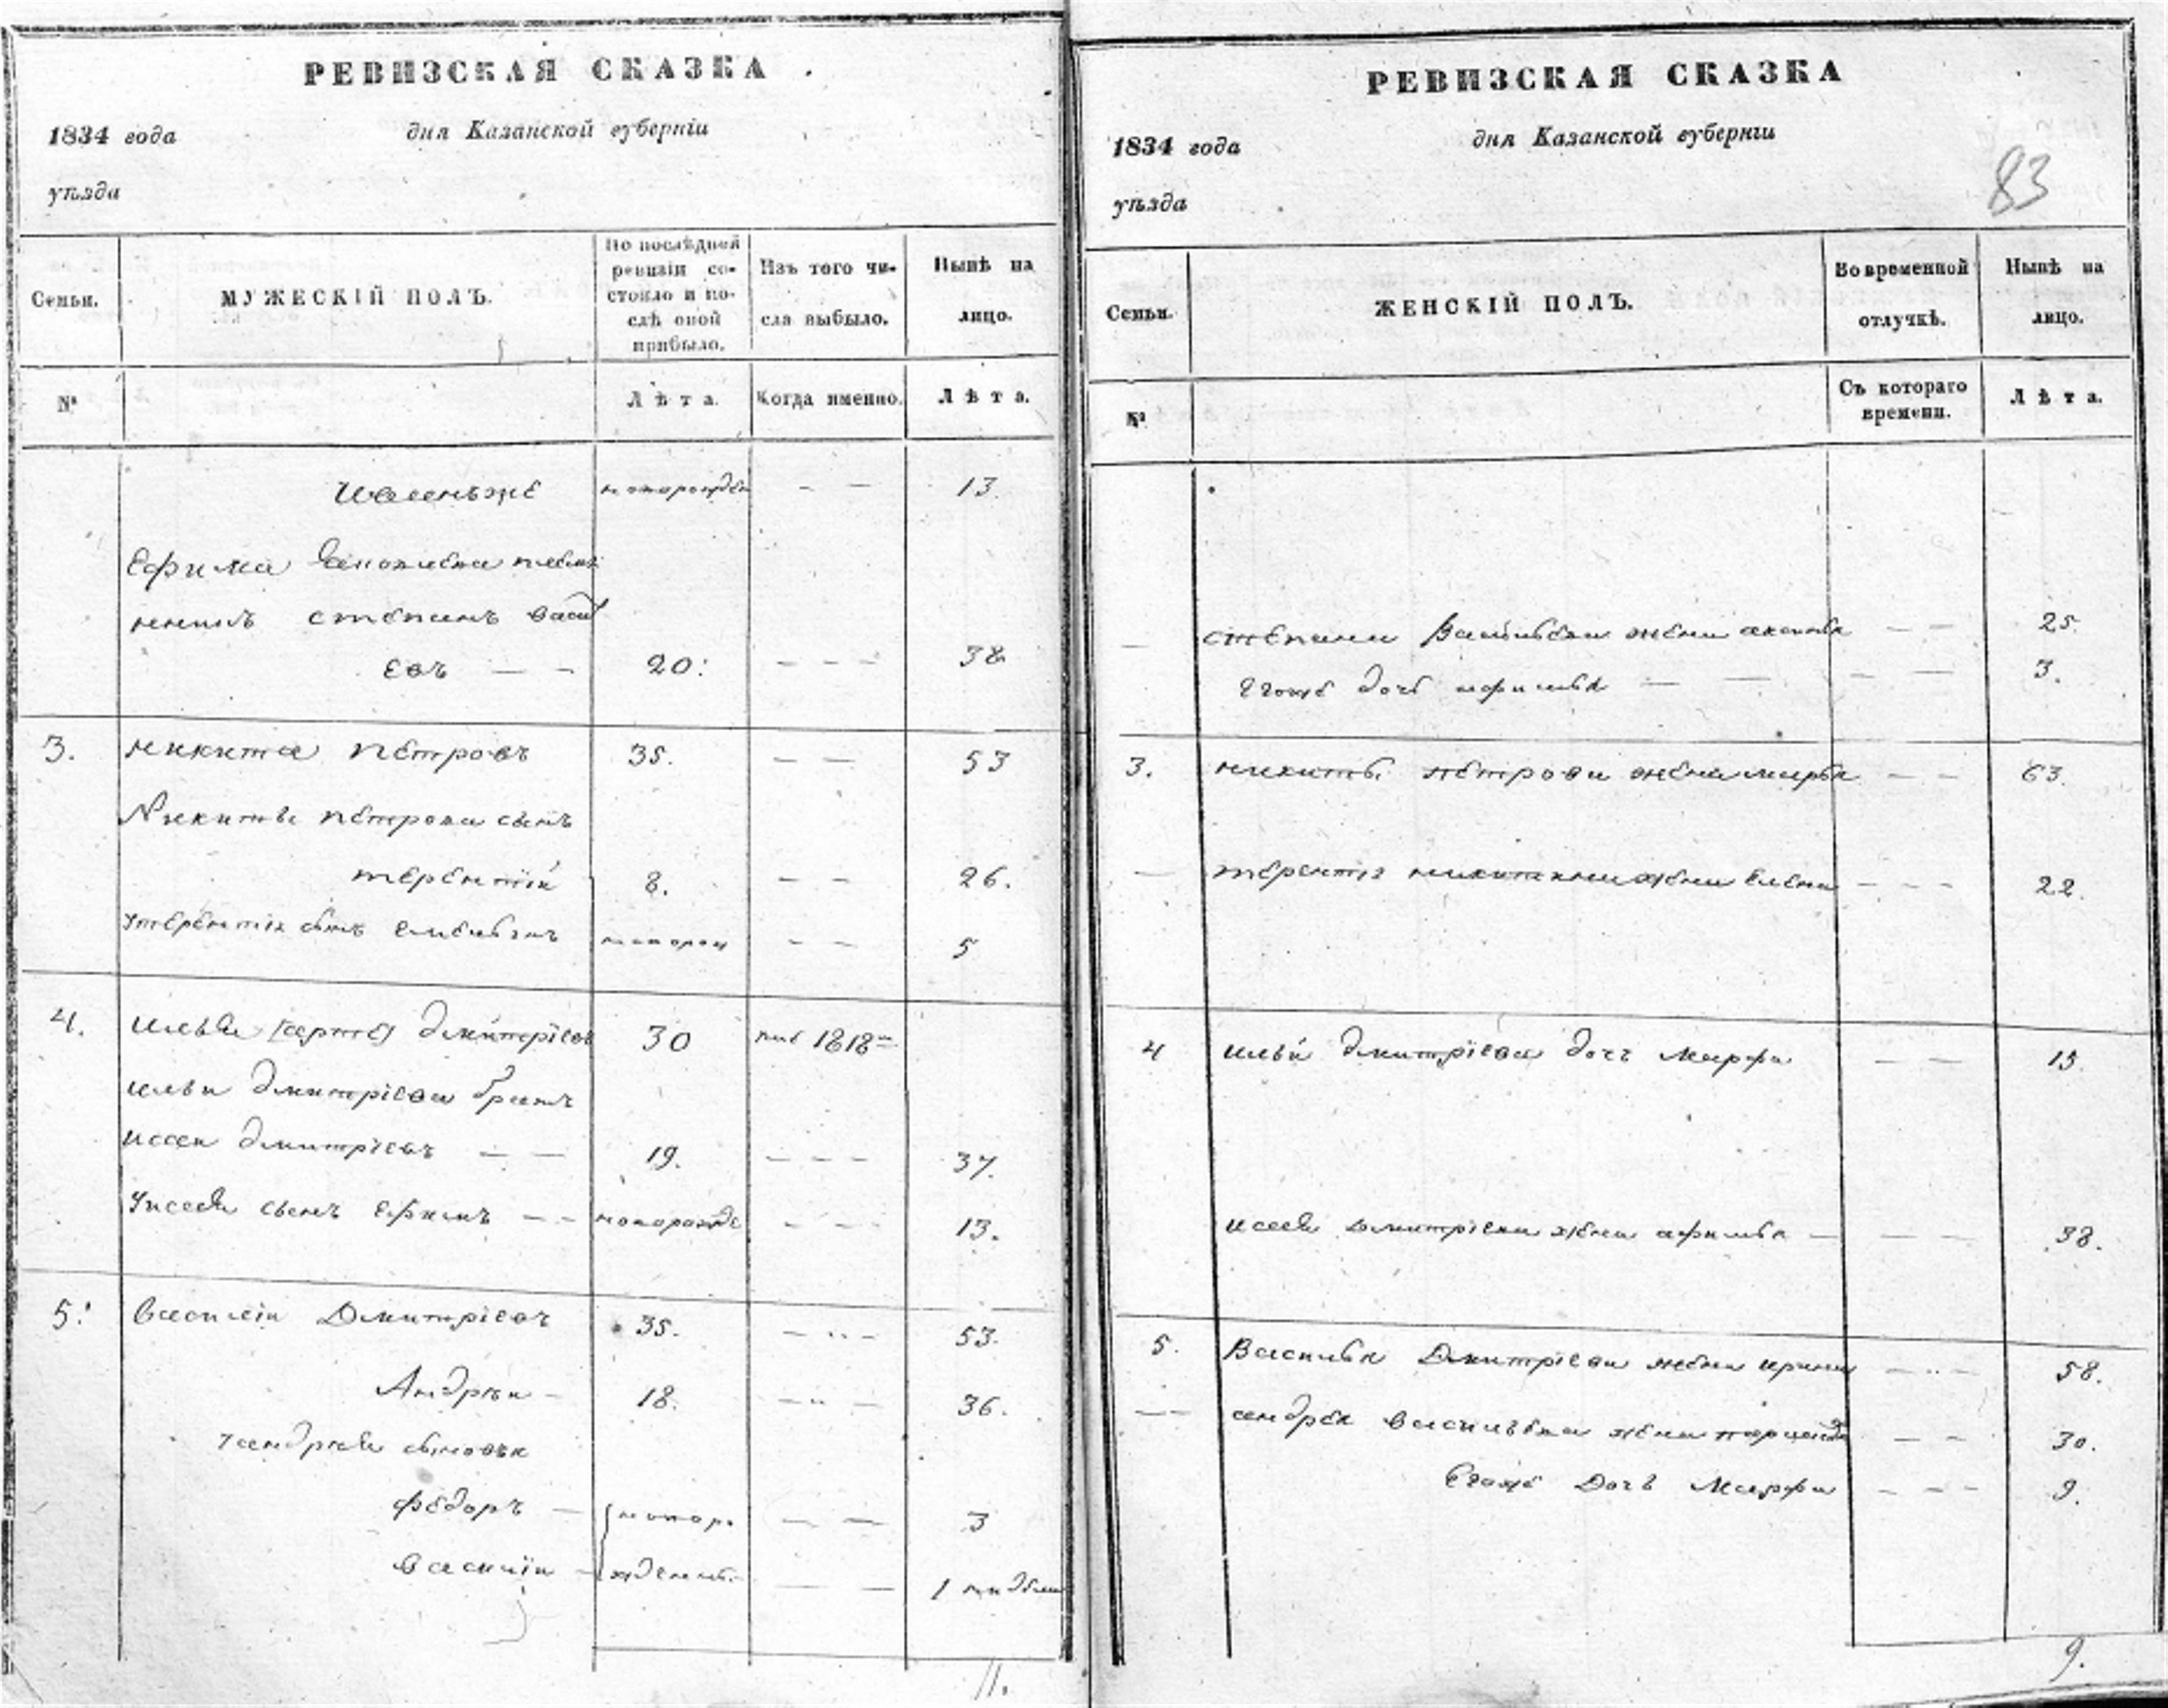 РЕВИЗСКАЯ СКАЗКА
1834 года дня Казанской губерніи
уѣзда
Семьи. МУЖЕСКІЙ ПОЛЪ. По послѣдней ревизіи состояло и послѣ оной прибыло. Изъ того числа выбыло. Нынѣ на лицо.
№ Лѣта. Когда именно. Лѣта.
новорожден — — 13.
Ефима
степанъ васил
евъ — — 20: — — — 38
3. никита петровъ 35. — — 53
Никиты петрова сынъ
терентій 8. — — 26.
утерентія сынъ новорож — — 5
4. илья дмитріевъ 30 1818
ильи дмитріева братъ
исай дмитріевъ — — 19. — — — 37.
уисая сынъ ефимъ — — новорожде — — — 13.
5: василій Дмитріевъ 35. — — — 53.
Андрѣй — 18. — — — 36.
уандрѣя сыновья
федоръ — новоро — — 3
василій — жденны — — 1 недѣли
11.
РЕВИЗСКАЯ СКАЗКА
1834 года дня Казанской губерніи
83
уѣзда
Семьи. ЖЕНСКІЙ ПОЛЪ. Во временной отлучкѣ. Нынѣ на лицо.
№ Съ котораго времени. Лѣта.
— степана Васильева жена — — 25.
егоже дочь — — — — 3.
3. никиты петрова жена марья — — 63.
— терентія никитина жена елена — — — 22.
4 ильи дмитріева дочь марфа — — 15.
исая дмитріева жена афимья — — — — 38.
5. Василья Дмитріева жена ирина — — — 58.
— — андрея васильева жена — — 30.
Егоже Дочь Марфа — — — 9.
9.